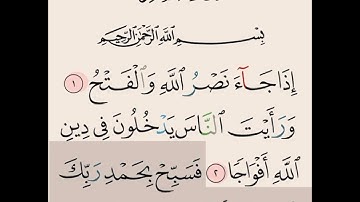 بِسْمِ اللَّهِ الرَّحْمَٰنِ الرَّحِيمِ
إِذَا جَآءَ نَصْرُ اللَّهِ وَالْفَتْحُ ١
وَرَأَيْتَ النَّاسَ يَدْخُلُونَ فِي دِينِ
اللَّهِ أَفْوَاجًا ٢ فَسَبِّحْ بِحَمْدِ رَبِّكَ